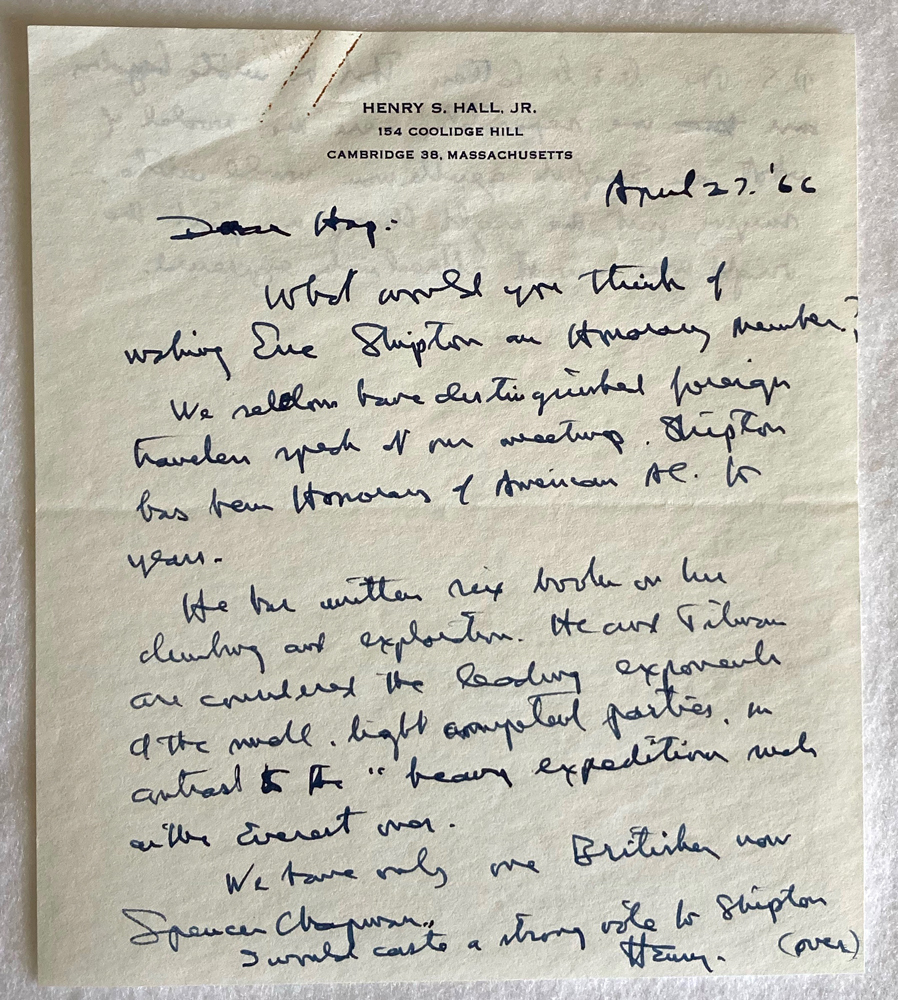 HENRY S. HALL, JR.
154 COOLIDGE HILL
CAMBRIDGE 38, MASSACHUSETTS
April 27. '66
Dear Hap:
What would you think of
making Eric Shipton an Honorary member?
We seldom have distinguished foreign
travelers speak at our meetings. Shipton
has been Honorary of American AC. for
years.
He has written six books on his
climbing and exploration. He and Tilman
are considered the leading exponents
of the small, light competent parties, in
contrast to the "heavy expedition such
as the Everest ones.
We have only one Britisher now
Spencer Chapman.
I would caste a strong vote for Shipton
Henry. (over)